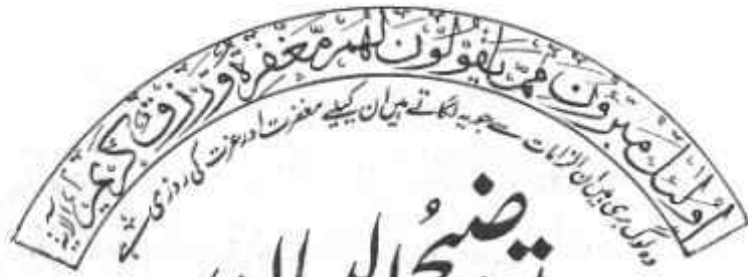 أُولٰئِكَ مُبَرَّءُونَ مِمَّا يَقُولُونَ لَهُم مَّغْفِرَةٌ وَّرِزْقٌ كَرِيمٌ
وہ لوگ بری ہیں ان الزامات سے جو یہ لگاتے ہیں ان کیلئے مغفرت اور عزت کی روزی ہے